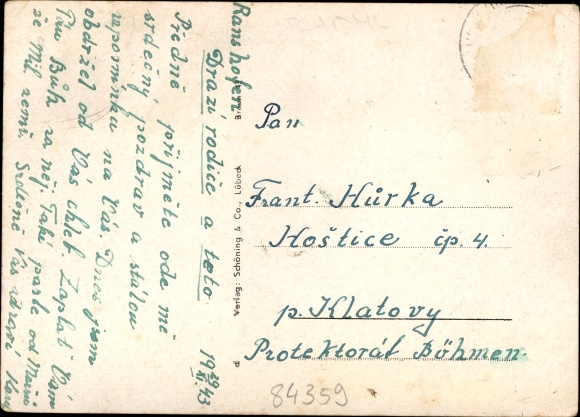 Ranshofen
19 29/XI. 43
Drazí rodiče a teto
Předně přijměte ode mě
srdečný pozdrav a stálou
vzpomínku na Vás. Dnes jsem
obdržel od Vás chleb. Zaplať Vám
Pán Bůh za něj. Také psaní od
že zemř. Srdečně Vás zdraví Karel
Verlag: Schöning & Co., Lübeck
Pan
Frant. Hůrka
Hoštice čp. 4.
p. Klatovy
Protektorát Böhmen
84359